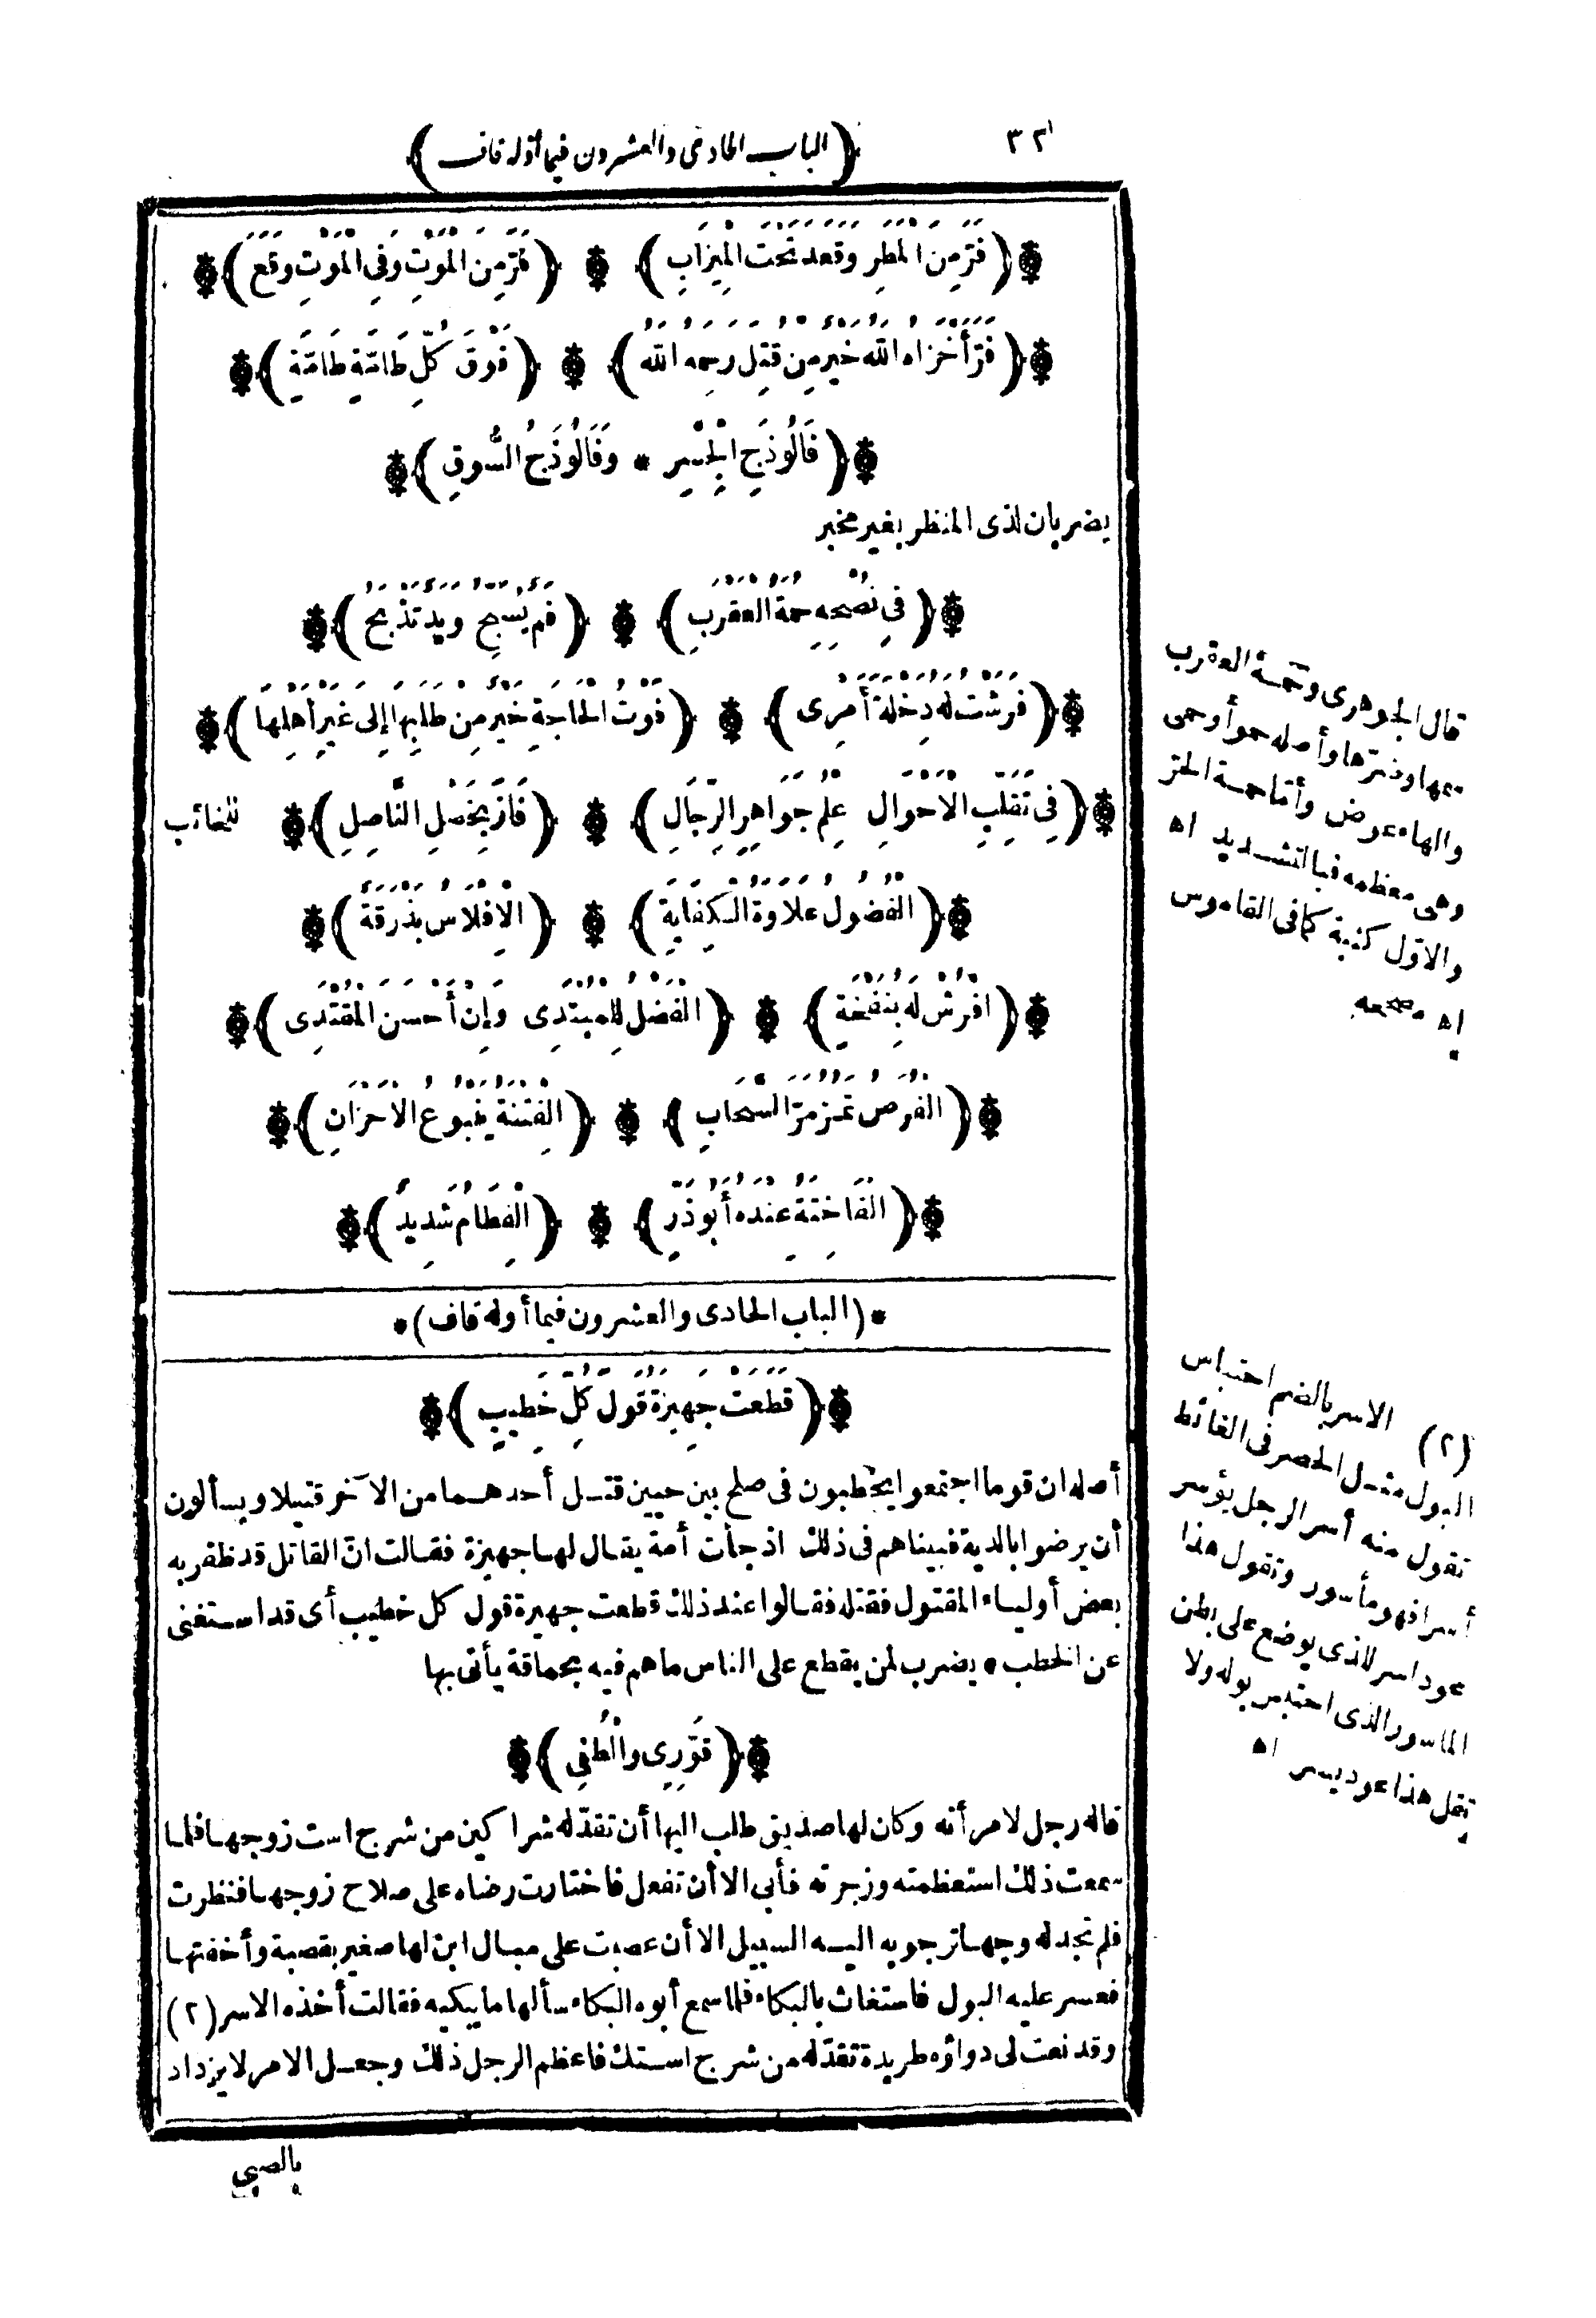 ٣٢
(الباب الحادى والعشرون فيما أوّله قاف)
(فَرَّ مِنَ الْمَطَرِ وَقَعَدَ تَحْتَ الْمِيزَابِ) (فَرَّ مِنَ الْمَوْتِ وَفِى الْمَوْتِ وَقَعَ)
(فَرَّ أَخْزَاهُ اللهُ خَيْرٌ مِنْ قُتِلَ رَحِمَهُ اللهُ) (فَوْقَ كُلِّ طَامَّةٍ طَامَّةٌ)
(فَالُوذَجُ الْجِسْرِ * وَفَالُوذَجُ السُّوقِ)
يضربان لذى المنظر بغير مخبر
(فِى نُصْحِهِ حُمَةُ الْعَقْرَبِ) (فَمٌ يُسَبِّحُ وَيَدٌ تَذْبَحُ)
(فَرَشْتُ لَهُ دِخْلَةَ أَمْرِى) (فَوْتُ الْحَاجَةِ خَيْرٌ مِنْ طَلَبِهَا إِلَى غَيْرِ أَهْلِهَا)
(فِى تَقَلُّبِ الْأَحْوَالِ عِلْمُ جَوَاهِرِ الرِّجَالِ) (فَازَ بِخَصْلِ النَّاصِلِ) للخائب
(الْفُضُولُ عِلَاوَةُ الْكِفَايَةِ) (الْإِفْلَاسُ بَذْرَقَةٌ)
(افْرُشْ لَهُ بِنَفْخَةٍ) (الْفَضْلُ لِلْمُبْتَدِى وَإِنْ أَحْسَنَ الْمُقْتَدِى)
(الْفُرَصُ تَمُرُّ مَرَّ السَّحَابِ) (الْفِتْنَةُ يَنْبُوعُ الْأَحْزَانِ)
(الْفَاخِتَةُ عِنْدَهُ أَبُو ذَرٍّ) (الْفِطَامُ شَدِيدٌ)
*(الباب الحادى والعشرون فيما أوله قاف)*
(قَطَعَتْ جَهِيزَةُ قَوْلَ كُلِّ خَطِيبٍ)
أصله ان قوما اجتمعوا يخطبون فى صلح بين حيين قتل أحدهما من الآخر قتيلا ويسألون
أن يرضوا بالدية فبيناهم فى ذلك اذ جاءت أمة يقال لها جهيزة فقالت انّ القاتل قد ظفر به
بعض أولياء المقتول فقتله فقالوا عند ذلك قطعت جهيزة قول كل خطيب أى قد استغنى
عن الخطب * يضرب لمن يقطع على الناس ما هم فيه بحماقة يأتى بها
(قَوِّرِى وَالْطُفِى)
قاله رجل لامرأته وكان لها صديق طلب اليها أن تقدّ له شراكين من شرج است زوجها فلما
سمعت ذلك استعظمته وزجرته فأبى الا أن تفعل فاختارت رضاه على صلاح زوجها فنظرت
فلم تجد له وجها ترجو به اليه السبيل الا أن عصبت على مبال ابن لها صغير بقصبة وأخفتها
فعسر عليه البول فاستغاث بالبكاء فلما سمع أبوه البكاء سألها ما يبكيه فقالت أخذه الاسر (٢)
وقد نعت لى دواؤه طريدة تقدّ له من شرج استك فاعظم الرجل ذلك وجعل الامر لا يزداد
بالصبى
قال الجوهرى وحمة العقرب
سمها وضرّها وأصله حمو أو حمى
والهاء عوض وأمّا حمة الحرّ
وهى معظمه فبالتشديد اه
والاوّل كثبة كما فى القاموس
اه مصححه
(٢) الاسر بالضم احتباس
البول مثل الحصر فى الغائط
تقول منه أسر الرجل يؤسر
أسرا فهو مأسور وتقول هذا
عود اسر للذى يوضع على بطن
المأسور الذى احتبس بوله ولا
تقل هذا عود يسر اه